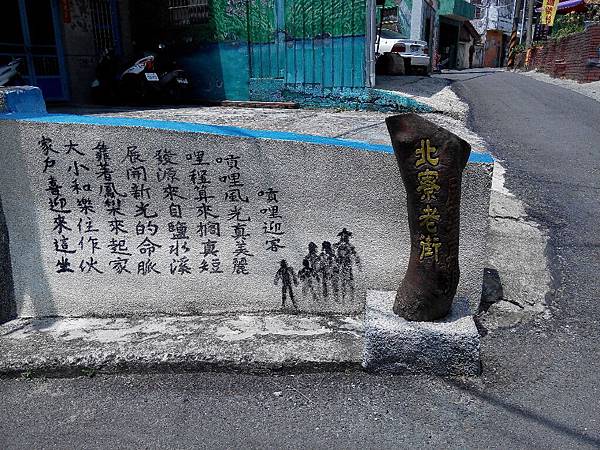 噴哩迎客
噴哩風光真美麗
哩程算來擱真短
發源來自鹽水溪
展開新光的命脈
靠著鳳梨來起家
大小和樂住作伙
家戶喜迎來這坐
北寮老街